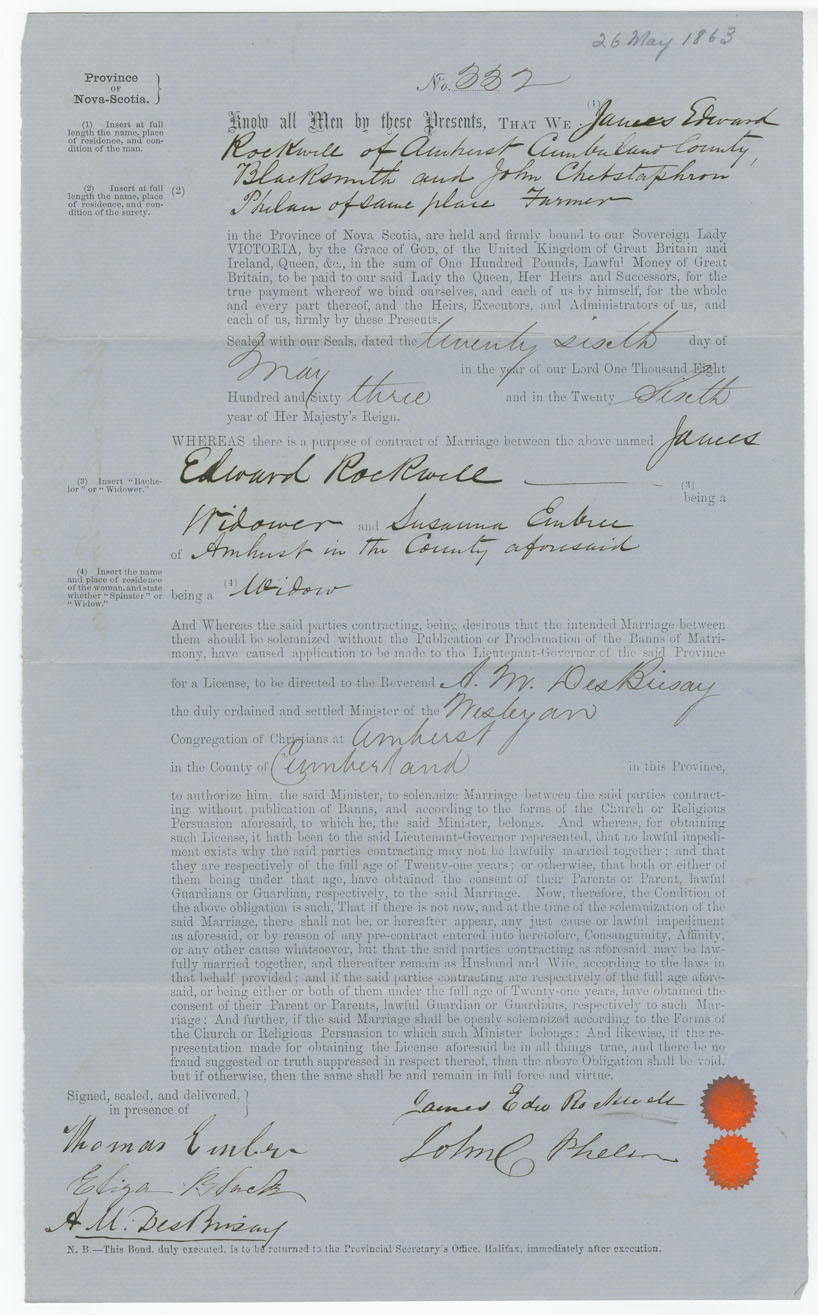 26 May 1863
Province
OF
Nova-Scotia.
No. 332
(1) Insert at full
length the name, place
of residence, and con-
dition of the man.
Know all Men by these Presents, THAT WE (1) James Edward
Rockwell of Amherst Cumberland County,
(2) Insert at full
length the name, place
of residence, and con-
dition of the surety.
(2)
Blacksmith and John
Phelan of same place Farmer
in the Province of Nova Scotia, are held and firmly bound to our Sovereign Lady
VICTORIA, by the Grace of GOD, of the United Kingdom of Great Britain and
Ireland, Queen, &c., in the sum of One Hundred Pounds, Lawful Money of Great
Britain, to be paid to our said Lady the Queen, Her Heirs and Successors, for the
true payment whereof we bind ourselves, and each of us by himself, for the whole
and every part thereof, and the Heirs, Executors, and Administrators of us, and
each of us, firmly by these Presents.
Sealed with our Seals, dated the twenty sixeth day of
May in the year of our Lord One Thousand Eight
Hundred and Sixty three and in the Twenty Sixeth
year of Her Majesty's Reign.
WHEREAS there is a purpose of contract of Marriage between the above named James
Edward Rockwell (3) being a
(3) Insert "Bache-
lor" or "Widower."
Widower and Susanna Embree
of Amherst in the County aforesaid
(4) Insert the name
and place of residence
of the woman, and state
whether "Spinster" or
"Widow."
being a (4) Widow
And Whereas the said parties contracting, being desirous that the intended Marriage between
them should be solemnized without the Publication or Proclamation of the Banns of Matri-
mony, have caused application to be made to the Lieutenant-Governor of the said Province
for a License, to be directed to the Reverend A. M. DesBrisay
the duly ordained and settled Minister of the Wesleyan
Congregation of Christians at Amherst
in the County of Cumberland in this Province,
to authorize him, the said Minister, to solemnize Marriage between the said parties contract-
ing without publication of Banns, and according to the forms of the Church or Religious
Persuasion aforesaid, to which he, the said Minister, belongs. And whereas, for obtaining
such License, it hath been to the said Lieutenant-Governor represented, that no lawful impedi-
ment exists why the said parties contracting may not be lawfully married together; and that
they are respectively of the full age of Twenty-one years; or otherwise, that both or either of
them being under that age, have obtained the consent of their Parents or Parent, lawful
Guardians or Guardian, respectively, to the said Marriage. Now, therefore, the Condition of
the above obligation is such, That if there is not now, and at the time of the solemnization of the
said Marriage, there shall not be, or hereafter appear, any just cause or lawful impediment
as aforesaid, or by reason of any pre-contract entered into heretofore, Consanguinity, Affinity,
or any other cause whatsoever, but that the said parties contracting as aforesaid may be law-
fully married together, and thereafter remain as Husband and Wife, according to the laws in
that behalf provided; and if the said parties contracting are respectively of the full age afore-
said, or being either or both of them under the full age of Twenty-one years, have obtained the
consent of their Parent or Parents, lawful Guardian or Guardians, respectively to such Mar-
riage: And further, if the said Marriage shall be openly solemnized according to the Forms of
the Church or Religious Persuasion to which such Minister belongs: And likewise, if the re-
presentation made for obtaining the License aforesaid be in all things true, and there be no
fraud suggested or truth suppressed in respect thereof, then the above Obligation shall be void,
but if otherwise, then the same shall be and remain in full force and virtue.
Signed, sealed, and delivered,
in presence of
James Edw Rockwell
Thomas Embree
John C Phelan
Eliza Black
A. M. DesBrisay
N. B.—This Bond, duly executed, is to be returned to the Provincial Secretary's Office, Halifax, immediately after execution.